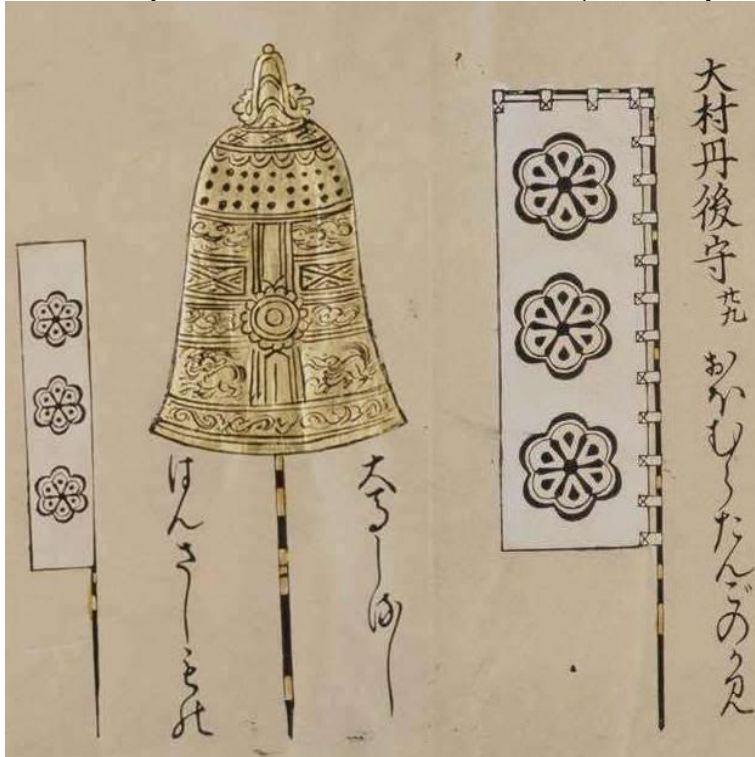 大村丹後守 廿九
おおむらたんごのかみ
大うましるし
はんさしもの